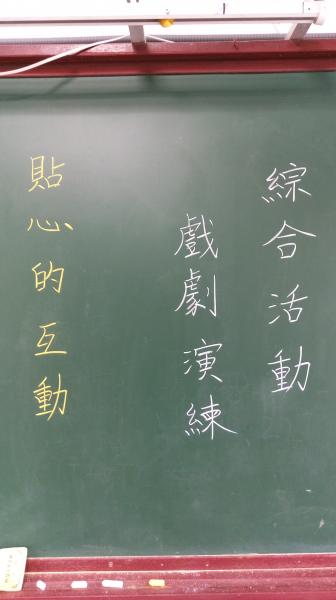 綜合活動
戲劇演練
貼心的互動